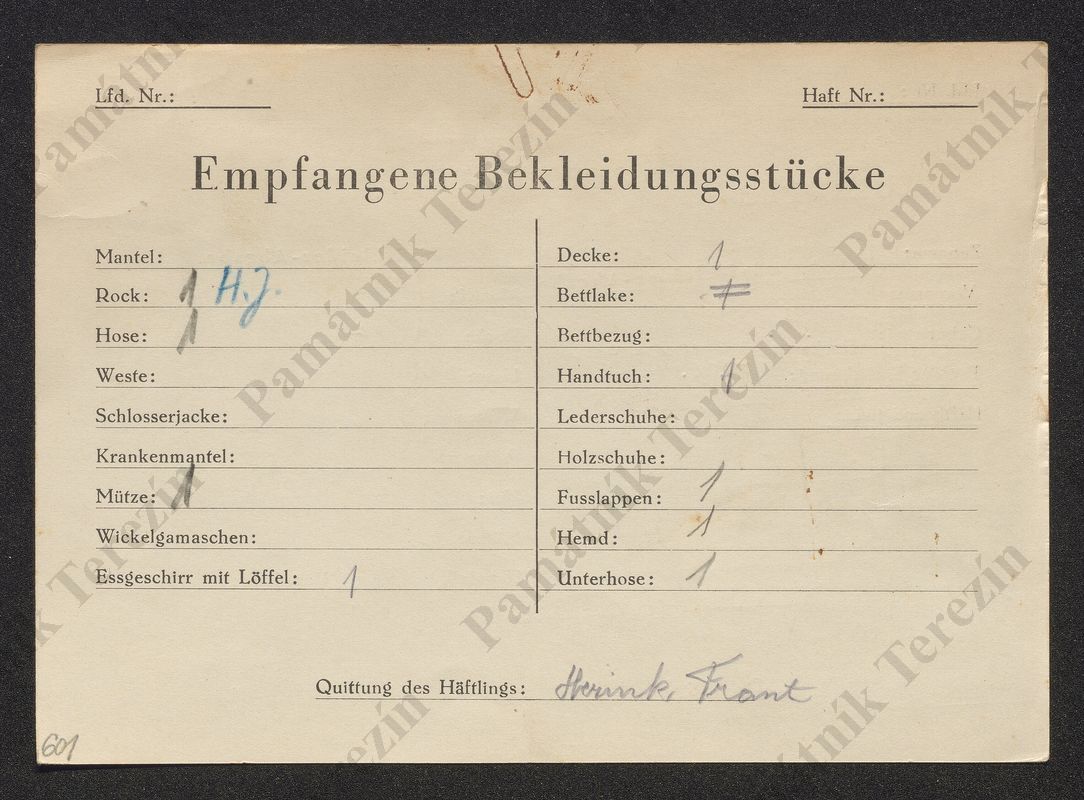 Lfd. Nr.:
Haft Nr.:
Empfangene Bekleidungsstücke
Mantel:
Rock: 1 H.J.
Hose: 1
Weste:
Schlosserjacke:
Krankenmantel:
Mütze: 1
Wickelgamaschen:
Essgeschirr mit Löffel: 1
Decke: 1
Bettlake:
Bettbezug:
Handtuch: 1
Lederschuhe:
Holzschuhe:
Fusslappen: 1
Hemd: 1
Unterhose: 1
Quittung des Häftlings: Herink, Frant
601
Památník Terezín